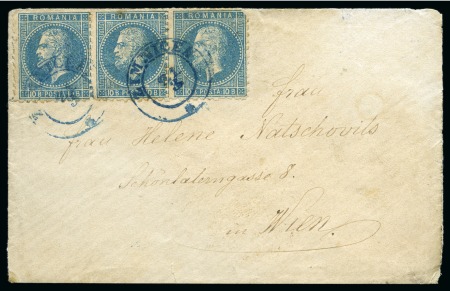 ROMANIA ROMANIA ROMANIA
10 B. POSTA 10 B. 10 B. POSTA 10 B. 10 B. POSTA 10 B.
frau
frau Helene Natschovits
Schönlaterngasse 8.
in Wien.